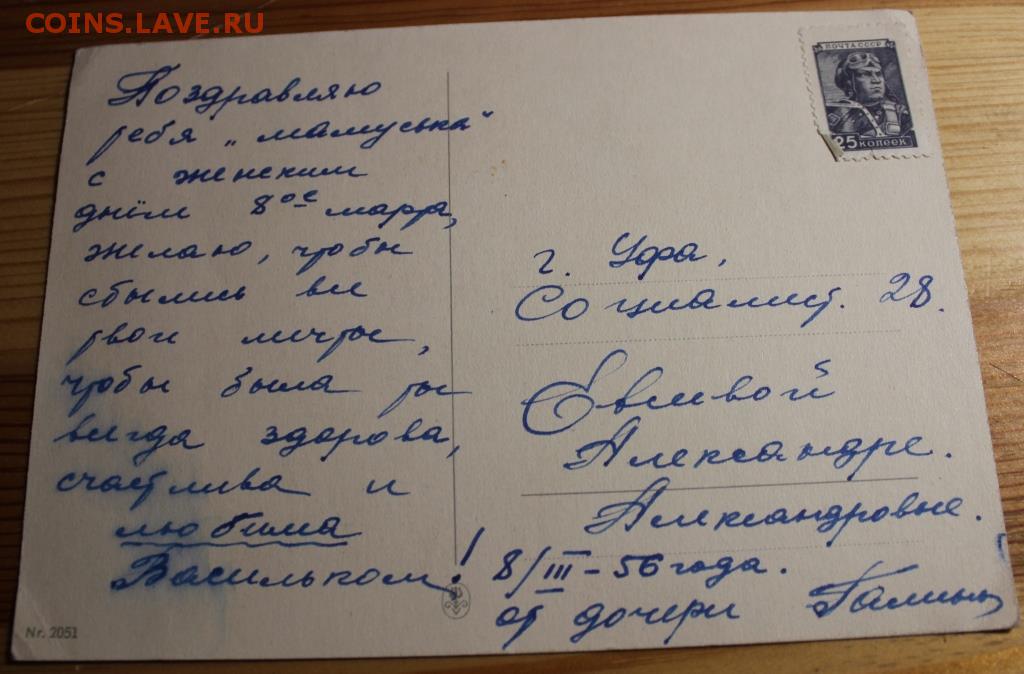 COINS.LAVE.РУ
Поздравляю
тебя „мамуська"
с женским
днём 8ое марта,
желаю, чтобы
сбылись все
твои мечты,
чтобы была ты
всегда здорова,
счастлива и
любима
Васильком!
Nr. 2051
ПОЧТА СССР
25 КОПЕЕК
г. Уфа,
Социалист. 28.
Евлевой
Александре.
Александровне.
8/III-56 года.
от дочери Галины